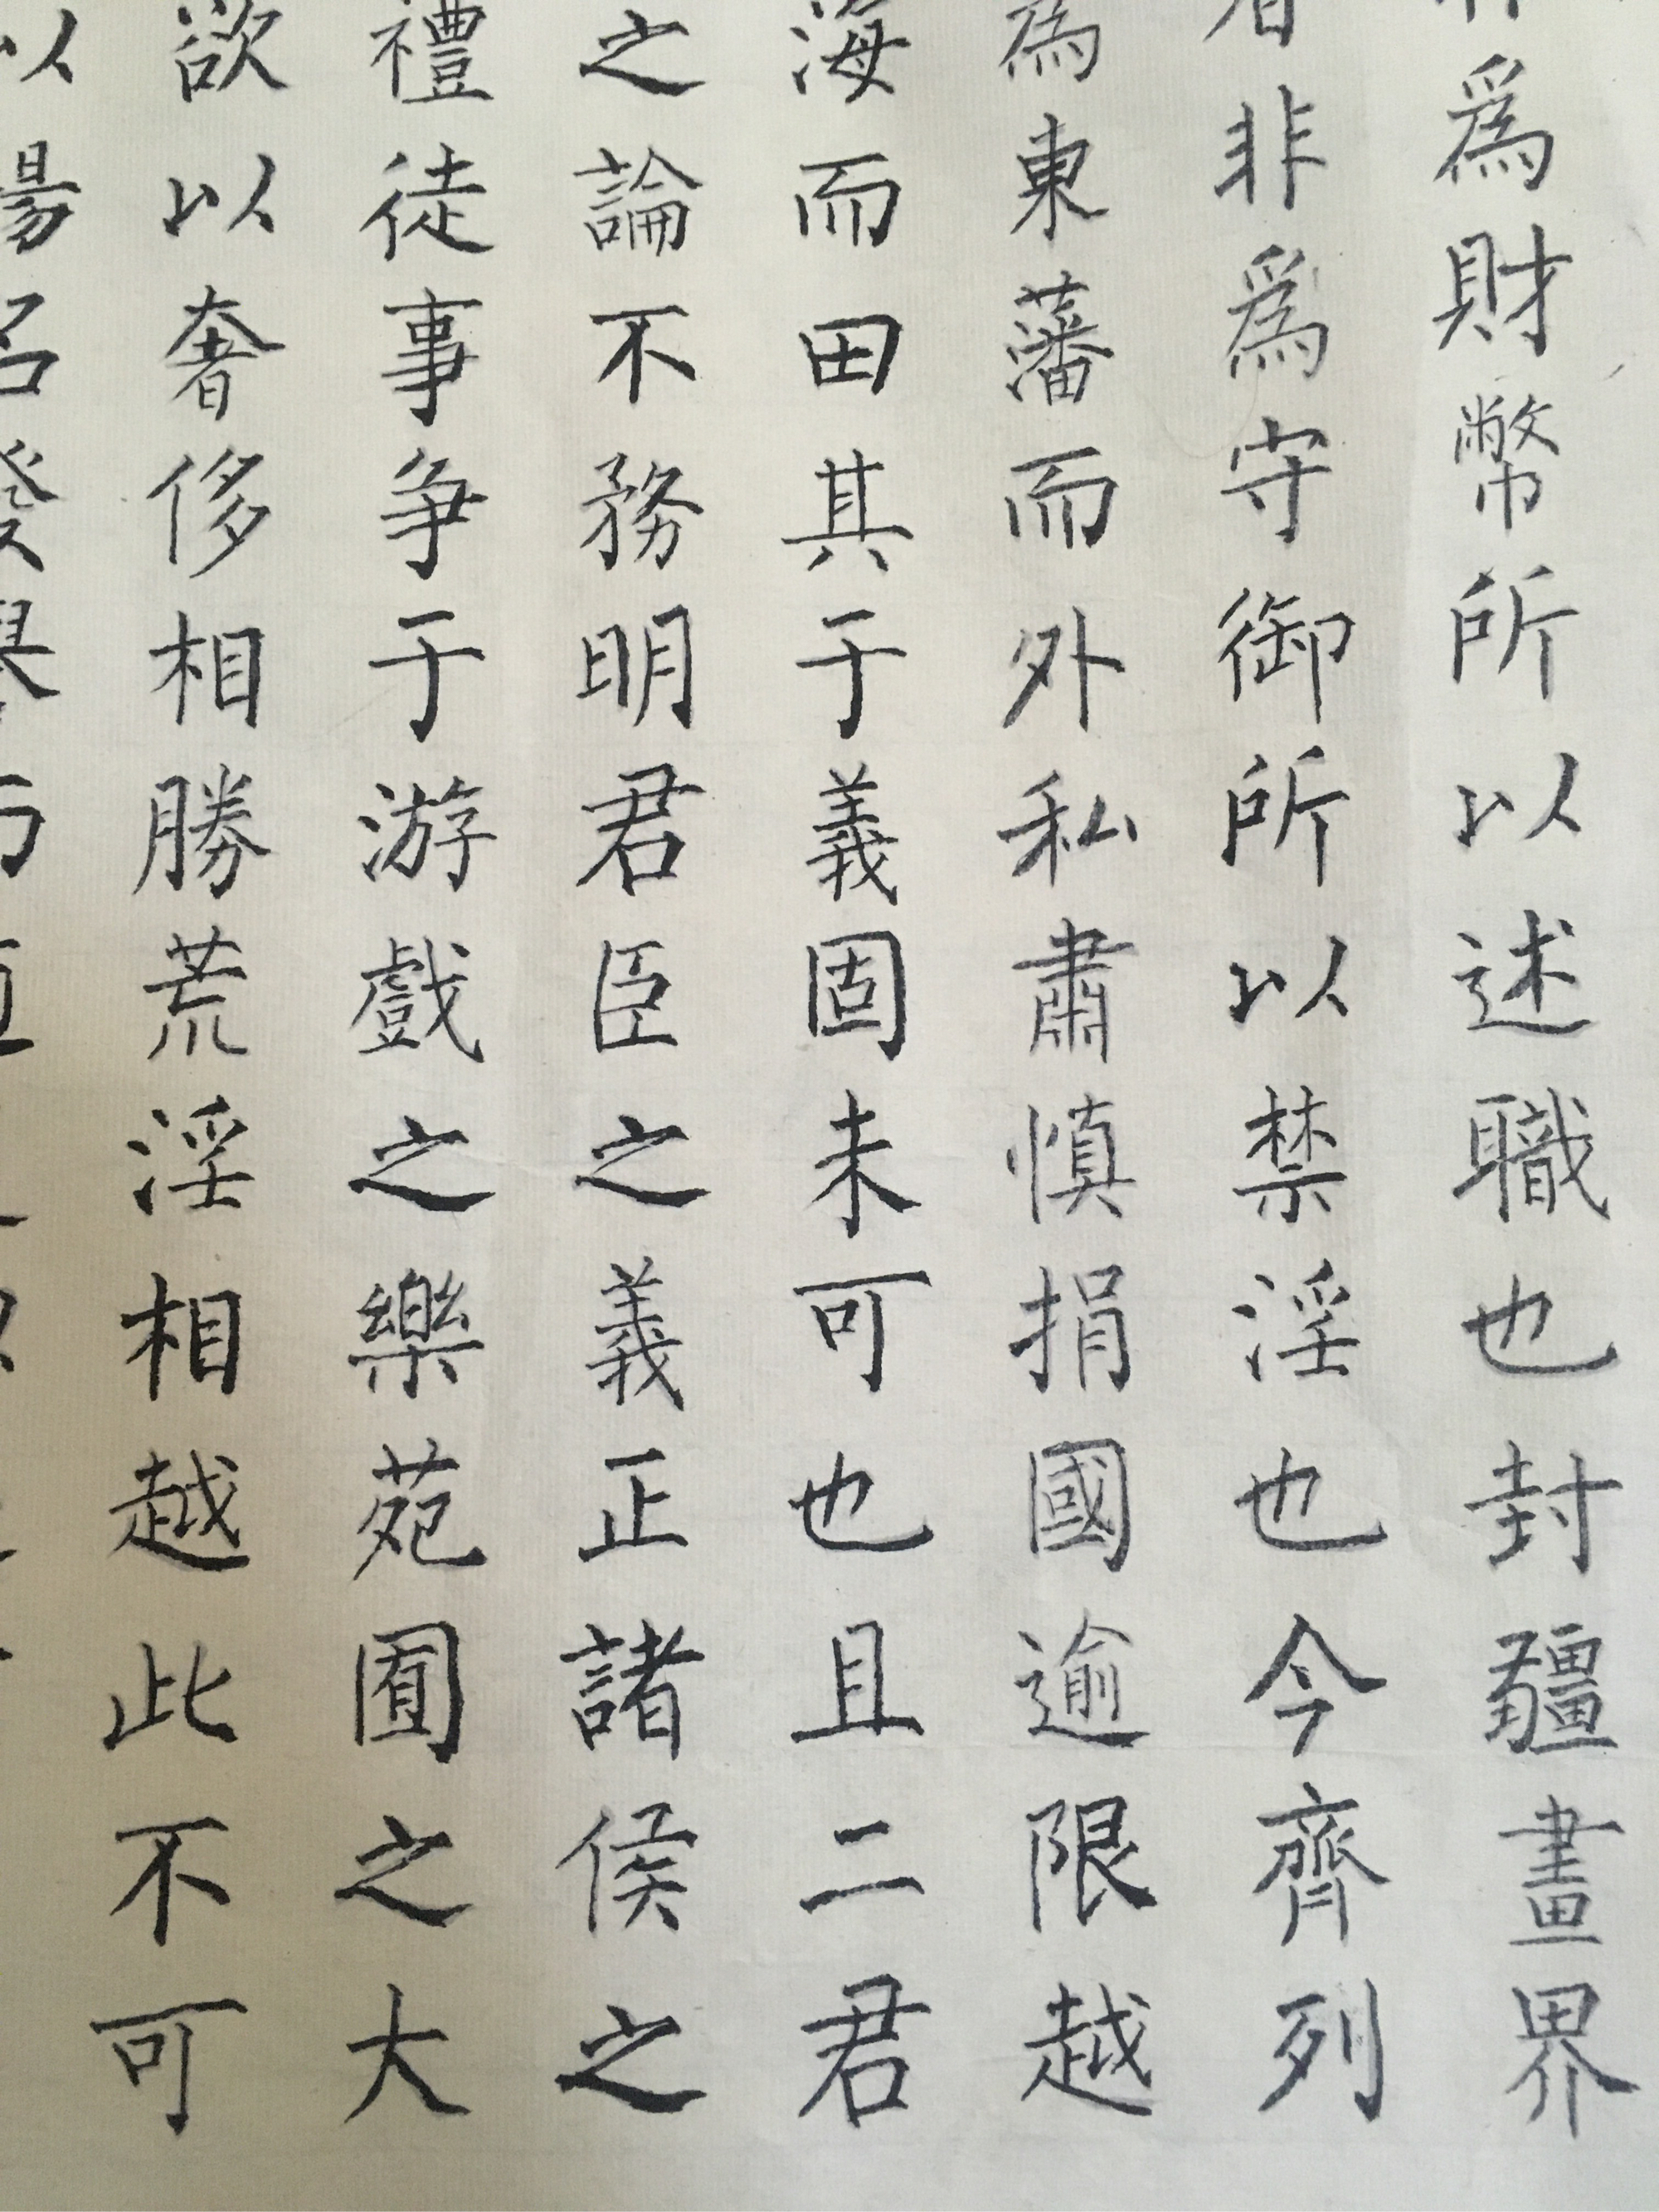 爲財幣所以述職也封疆畫界
非爲守御所以禁淫也今齊列
為東藩而外私肅慎捐國逾限越
海而田其于義固未可也且二君
之論不務明君臣之義正諸侯之
禮徒事争于游戲之樂苑囿之大
欲以奢侈相勝荒淫相越此不可
以揚名發譽